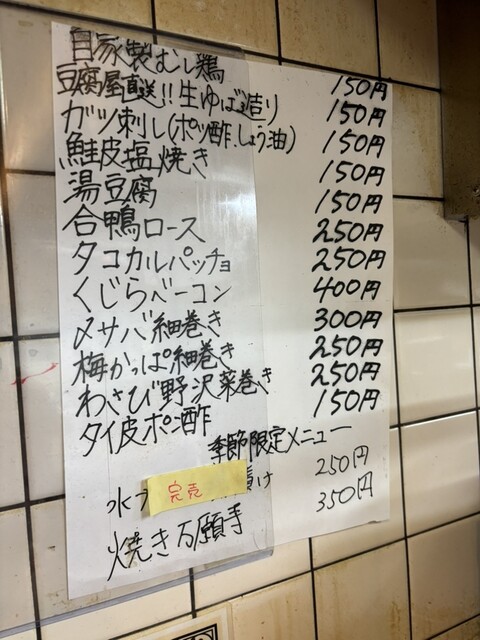 自家製むし鶏 150円
豆腐屋直送!!生ゆば造り 150円
ガツ刺し(ポン酢、しょう油) 150円
鮭皮塩焼き 150円
湯豆腐 150円
合鴨ロース 250円
タコカルパッチョ 250円
くじらベーコン 400円
〆サバ細巻き 300円
梅かっぱ細巻き 250円
わさび野沢菜巻き 250円
タイ皮ポン酢 150円
季節限定メニュー
水 完売 け 250円
焼き万願寺 350円